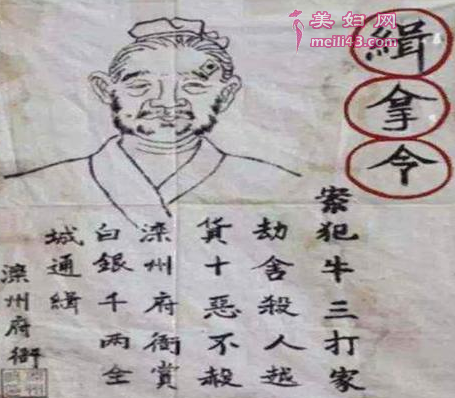 美妇网
meili43.com
緝拿令
案犯牛三打家
劫舍殺人越
貨十惡不赦
滦州府衙賞
白銀千两全
城通緝
滦州府衙